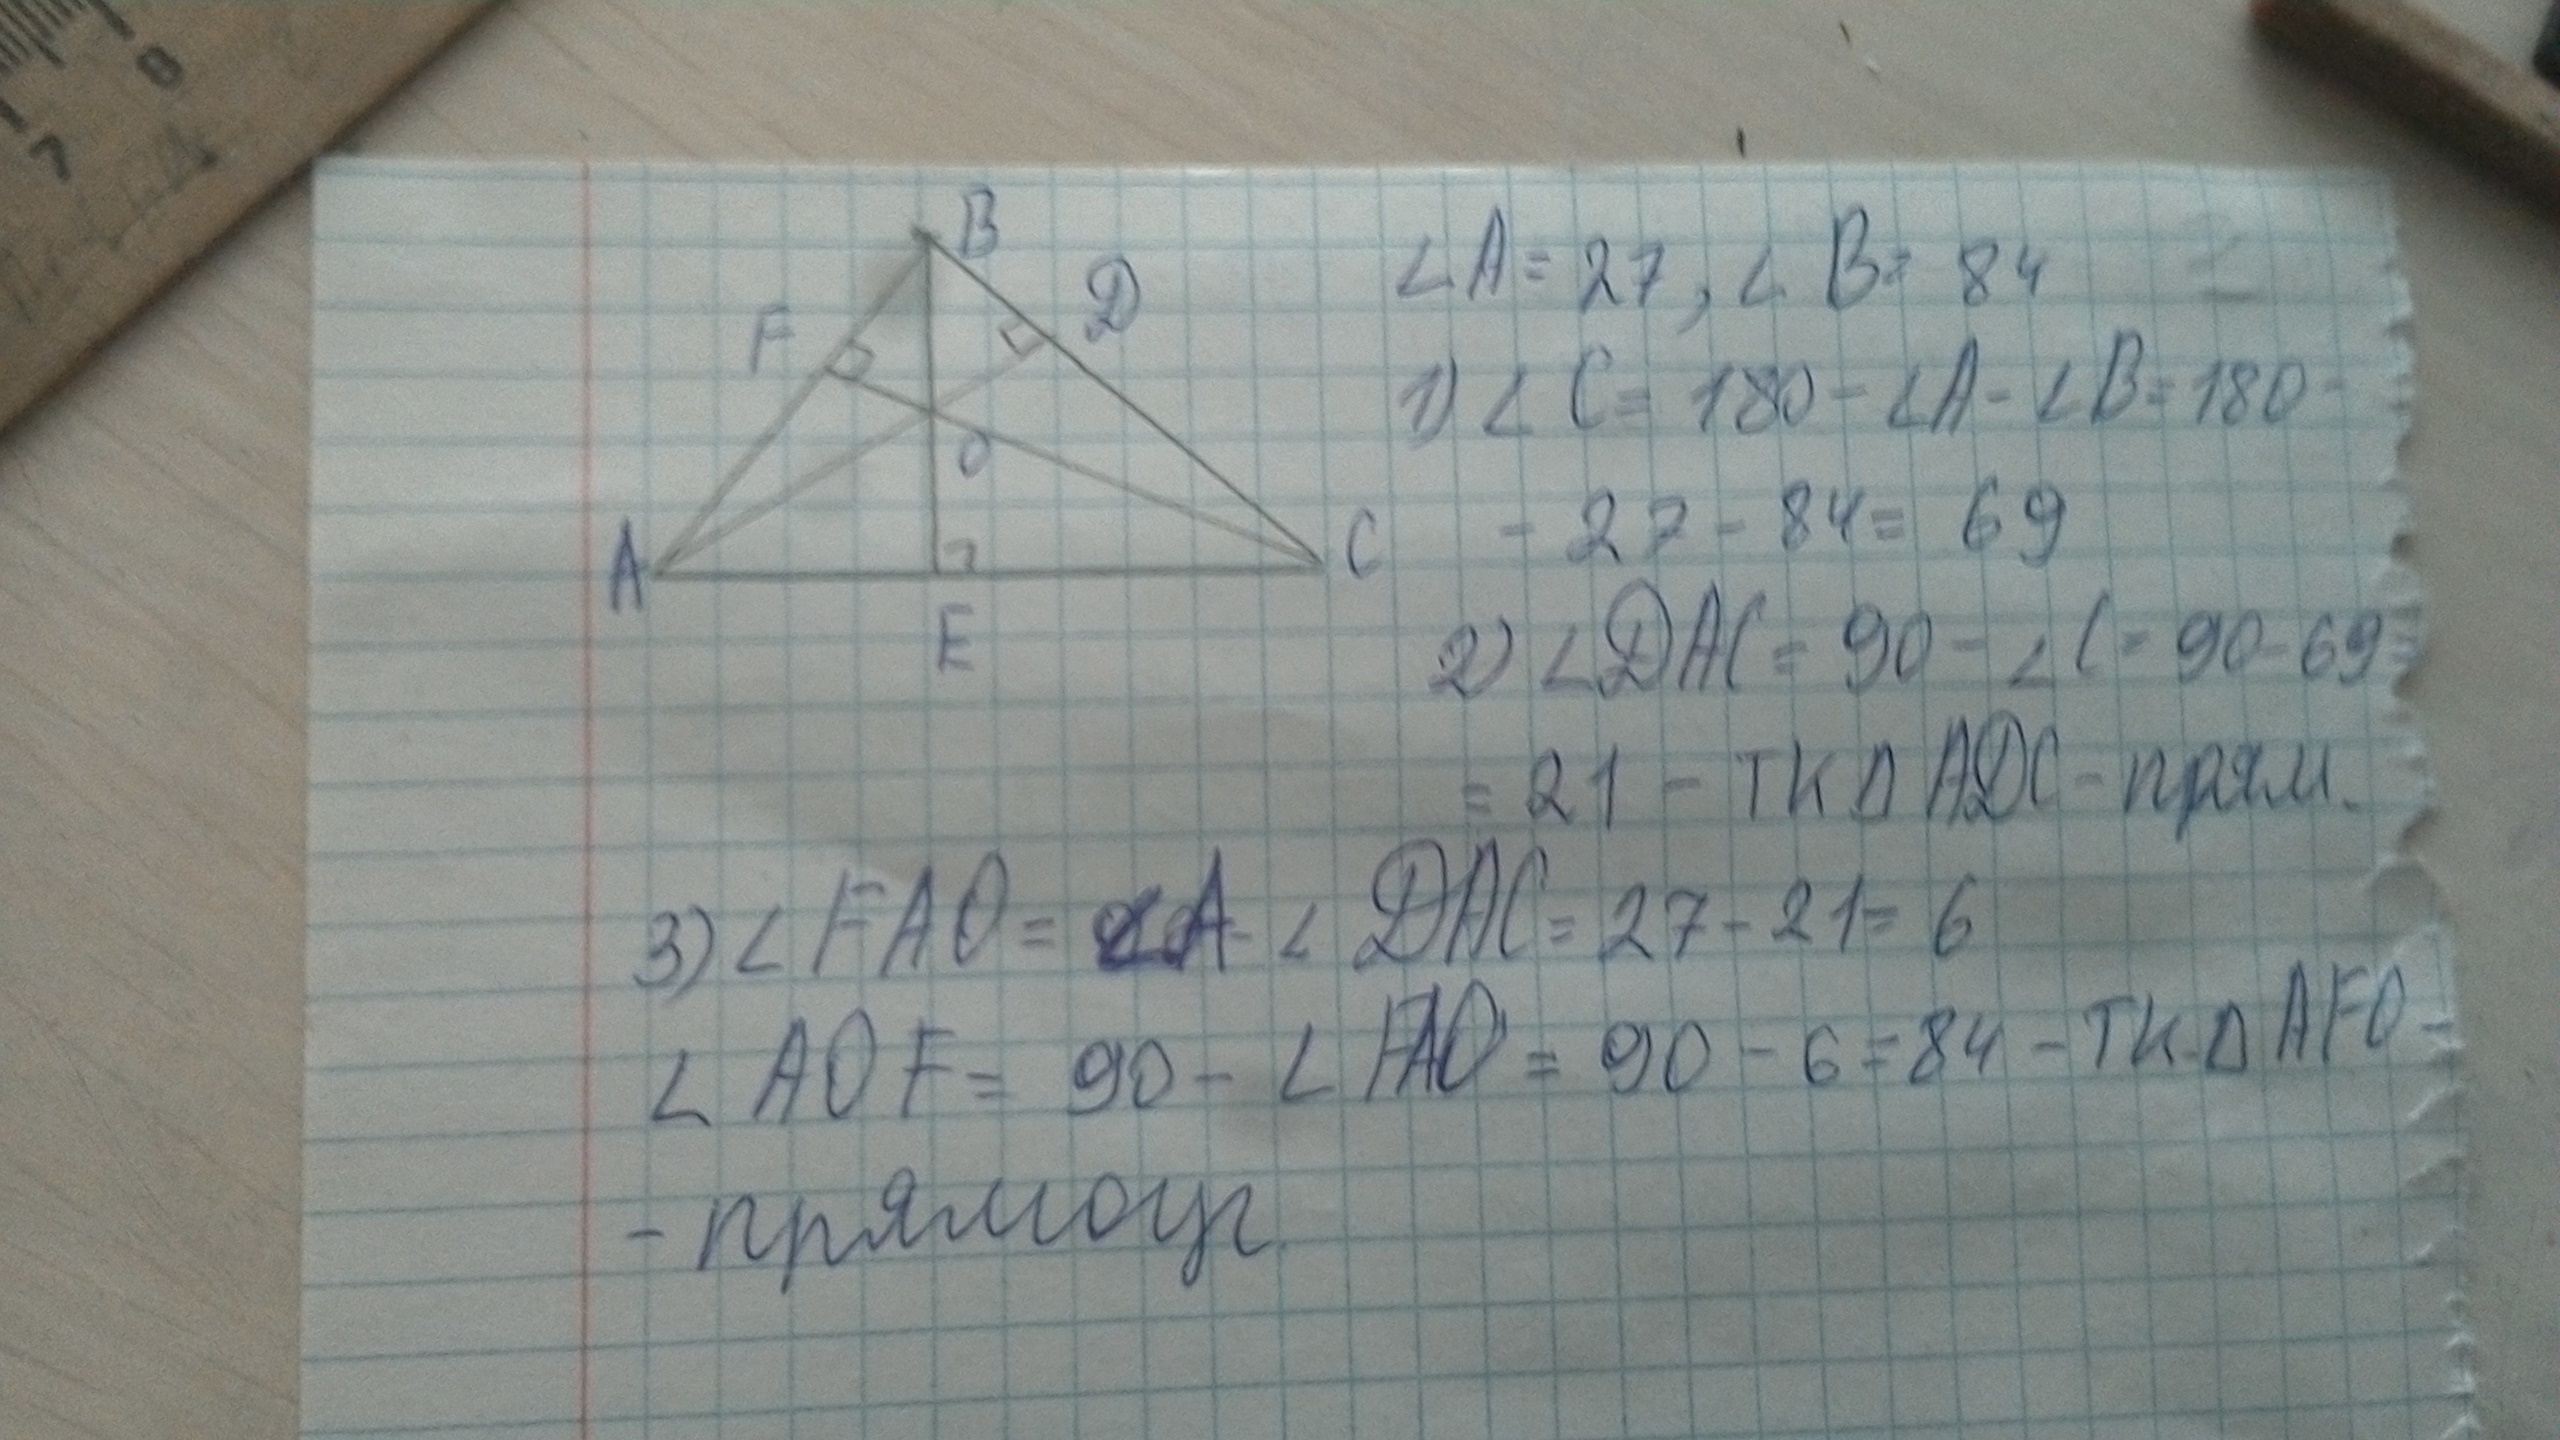 8
7
B
D
F
O
A
C
E
∠A = 27, ∠B = 84
1) ∠C = 180 - ∠A - ∠B = 180 -
- 27 - 84 = 69
2) ∠DAC = 90 - ∠C = 90 - 69 =
= 21 - ТК Δ ADC - прям.
3) ∠FAO = ∠A - ∠DAC = 27 - 21 = 6
∠AOF = 90 - ∠FAO = 90 - 6 = 84 - ТК Δ AFO -
- прямоуг.